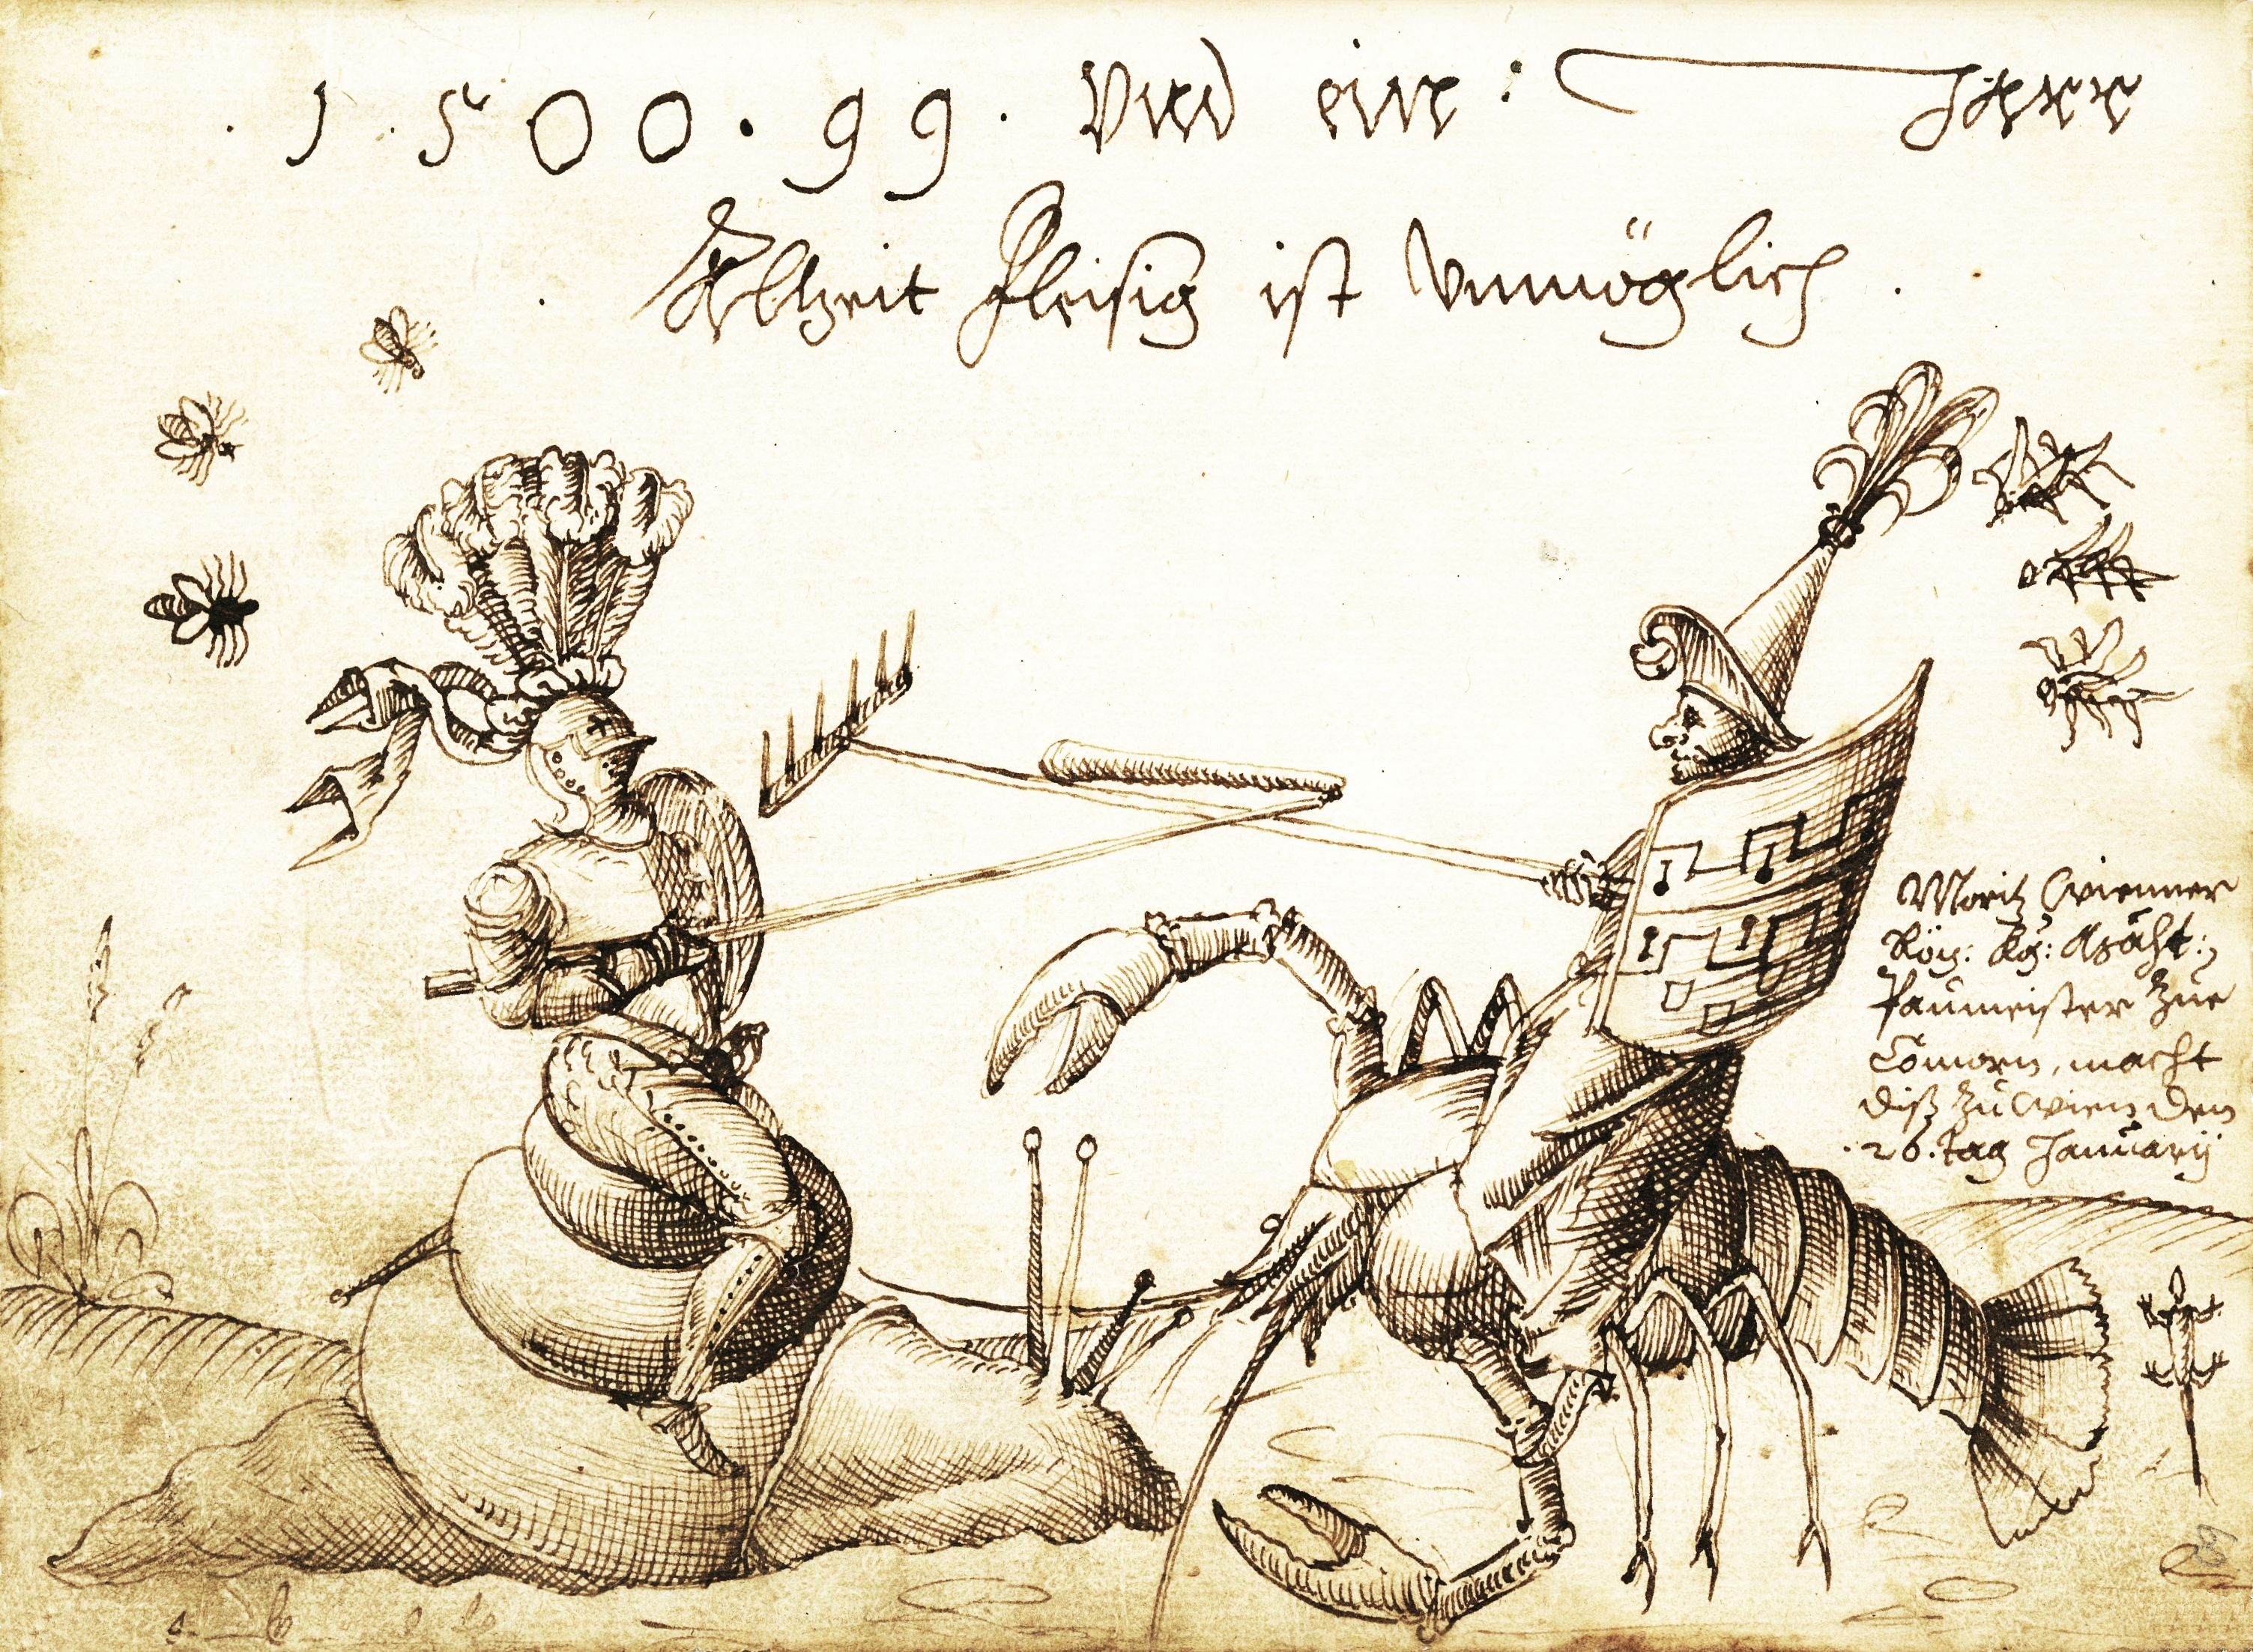 . 1 . 5 0 0 . 9 9 . Vnd eine : Jarr
. Allzeit fleisig ist Vnmöglich .
Moritz Wienner
Röm: Kÿ: Mäht:
Paumeister zue
Comorn, macht
diß zu Wien den
. 26. tag January